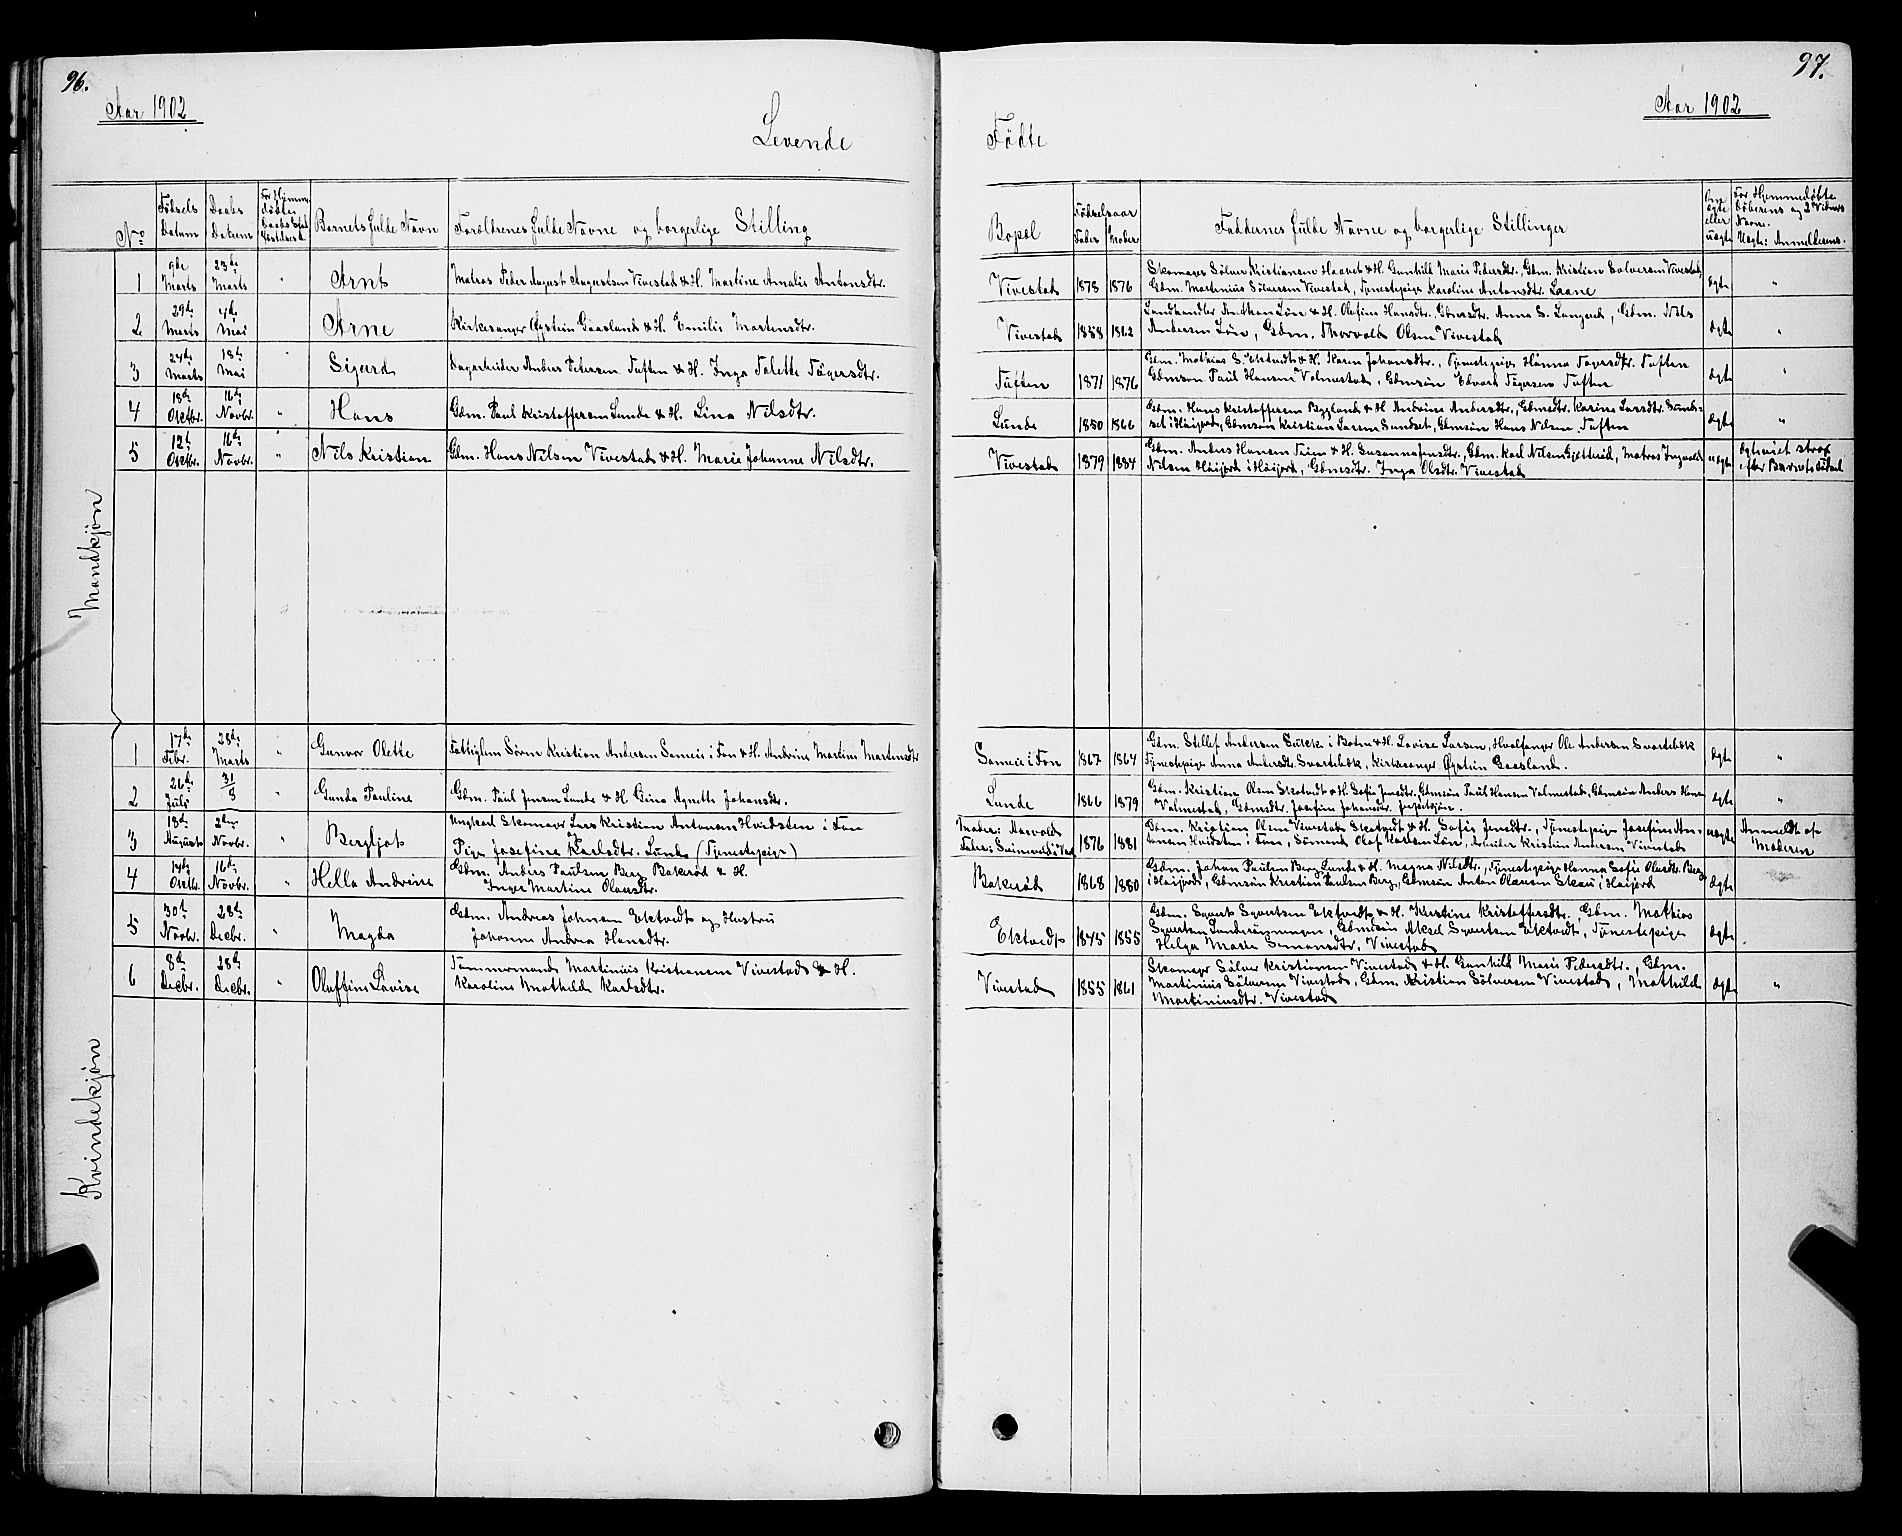 96.
Aar 1902
Levende
No
Fødsels Datum
Daabs Datum
Barnets fulde Navn
Forældrenes fulde Navne og borgerlige Stilling
Mandkjøn
1 9de Marts 23de Marts " Arnt Matros Peder August Augustsen Vivestad & H. Martine Amalie Antonsdtr.
2 29de Marts 4de Mai " Arne Kirkesanger Øystein Gaasland & H. Emilie Martinsdtr.
3 24de Marts 18de Mai " Sigurd Dagarbeider Anders Petersen Tuften & H. Inga Talette Fagersdtr.
4 18de Oktbr. 16de Novbr. " Hans Gdm. Paul Kristoffersen Lunde & H. Lina Nilsdtr.
5 12te Oktbr. 16de Novbr. " Nils Kristian Gdm. Hans Nilsen Vivestad & H. Marie Johanne Nilsdtr.
Kvindekjøn
1 17de Febr. 28de Marts " Gunvor Olette Fattiglem Søren Kristian Andersen Sameie i Fon & H. Andrine Martine Martinsdtr
2 26de Juli 31/8 " Gunda Pauline Gdm. Paul Jensen Lunde & H. Gina Agnethe Johansdtr.
3 18de August 2den Novbr. " Bergljot Ungkarl Skomager Lars Kristian Antonsen Hvidsten i Fon
Pige Josefine Karlsdtr. Lunde (Tjenestepige)
4 14de Oktbr. 16de Novbr. " Hella Andrine Gdm. Anders Paulsen Berg Bakerød & H.
Inger Martine Olausdtr.
5 30te Novbr. 28de Decbr. " Magda Gdm. Andreas Johnsen Ektvedt og Hustru
Johanne Andrea Hansdtr.
6 8de Decbr. 28de Decbr. " Oluffine Lovise Tømmermand Martinius Kristiansen Vivestad & H.
Karoline Mathilde Karlsdtr.
97.
Aar 1902
Fødte
Bopæl
Fødselsaar
Fader Moder
Faddernes fulde Navne og borgerlige Stillinger
Om ægte eller uægte
For Hjemmedøbte Døberens og 2 Vidners Navn.
Uægte: Anmelderens.
Vivestad 1878 1876 Skomager Sølver Kristiansen Haavet & H. Gunhild Marie Pedersdtr., Gdm. Kristian Sølversen Vivestad,
Gdm. Martinius Sølversen Vivestad, Tjenestepige Karoline Antonsdtr. Laane ægte "
Vivestad 1858 1862 Landhandler Anthon Løn & H. Olefine Hansdtr., Gdmsdtr. Anna S. Langerud, Gdm. Nils
Andersen Løn, Gdm. Thorvald Olsen Vivestad ægte "
Tuften 1871 1876 Gdm. Mathias S. Ektvedt & H. Karen Johansdtr., Tjenestepige Hanna Fagersdtr. Tuften
Gdmsøn Paul Hansen Valmestad, Gdmsøn Edvard Fagersen Tuften ægte "
Lunde 1850 1866 Gdm. Hans Kristoffersen Bygland & H. Andrine Andersdtr., Gdmsdtr. Karine Larsdtr. Sundset
i Høijord, Gdmsøn Kristian Larsen Sundset, Gdmsøn Hans Nilsen Tuften ægte "
Vivestad 1879 1884 Gdm. Anders Hansen Tuin & H. Susanna Jensdtr., Gdm. Karl Nilsen Gjetterød, Matros Ingvald
Nilsen Høijord i Høijord, Gdmsdtr. Inga Olsdtr. Vivestad uægte ægteviet strax
efter Barnets Fødsel
Sameie i Fon 1867 1864 Gdm. Stillef Andersen i Botne & H. Lovise Larsen, Hvalfanger Ole Andersen Svartebæk
Tjenestepige Anna Andersdtr. Svartebæk, Kirkesanger Øystein Gaasland. ægte "
Lunde 1866 1879 Gdm. Kristian Olsen Ektvedt & H. Sofie Jensdtr., Gdmsøn Paul Hansen Valmestad, Gdmsøn Anders Hansen
Valmestad, Gdmsdtr. Josefine Johansdtr. ægte "
Moder: Aasvold
Fader: 1876 1881 Gdm. Kristian Olsen Vivestad Ektvedt & H. Sofie Jensdtr., Tjenestepige Josefine Antonsen
Hvidsten i Fon, Sømand Olaf Karlsen Løn, Arbeider Kristian Andersen Vivestad uægte Anmeldt af
Moderen
Bakerød 1868 1880 Gdm. Johan Paulsen Berg Lunde & H. Magna Nilsdtr., Tjenestepige Hanna Sofie Olausdtr. Berg
i Høijord, Gdmsøn Kristian Paulsen Berg, Gdmsøn Anton Olausen Skau i Høijord ægte
Ektvedt 1845 1855 Gdm. Syvert Syvertsen Ektvedt & H. Kristine Kristoffersdtr., Gdm. Mathias
Syvertsen Lunderønningen, Gdmsøn Aksel Syvertsen Ektvedt, Tjenestepige
Helga Marie Simensdtr. Vivestad ægte
Vivestad 1855 1861 Skomager Sølver Kristiansen Vivestad & H. Gunhild Marie Pedersdtr., Gdm.
Martinius Sølversen Vivestad, Gdm. Kristian Sølversen Vivestad, Mathilde
Martiniusdtr. Vivestad ægte "